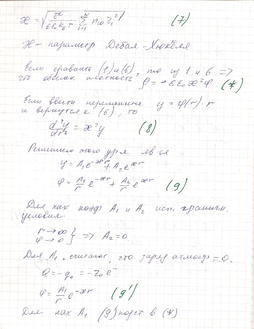 æ = √(e²/(ε ε₀ k₀ T) Σ n_{i0} z_i²) (7)
æ - параметр Дебая-Хюккеля
Если сравнить (1) и (6), то из 1 и 6 =>
что объемн. плотность ρ = - ε ε₀ æ² φ (*)
Если ввести переменную y = φ(r) · r
и вернуться к (6), то
d²y/dr² = æ² y (8)
Решением этого ур-я явл-ся
y = A₁e^{-ær} + A₂e^{ær}
φ = A₁/r e^{-ær} + A₂/r e^{ær} (9)
Для нах коэф A₁ и A₂ исп. граничн.
условия
r → ∞
φ → 0 } => A₂ = 0
Для A₁ считают, что заряд атмосф = 0.
φ = A₁/r e^{-ær} (9')
Для нах A₁ (9) подст в (*)